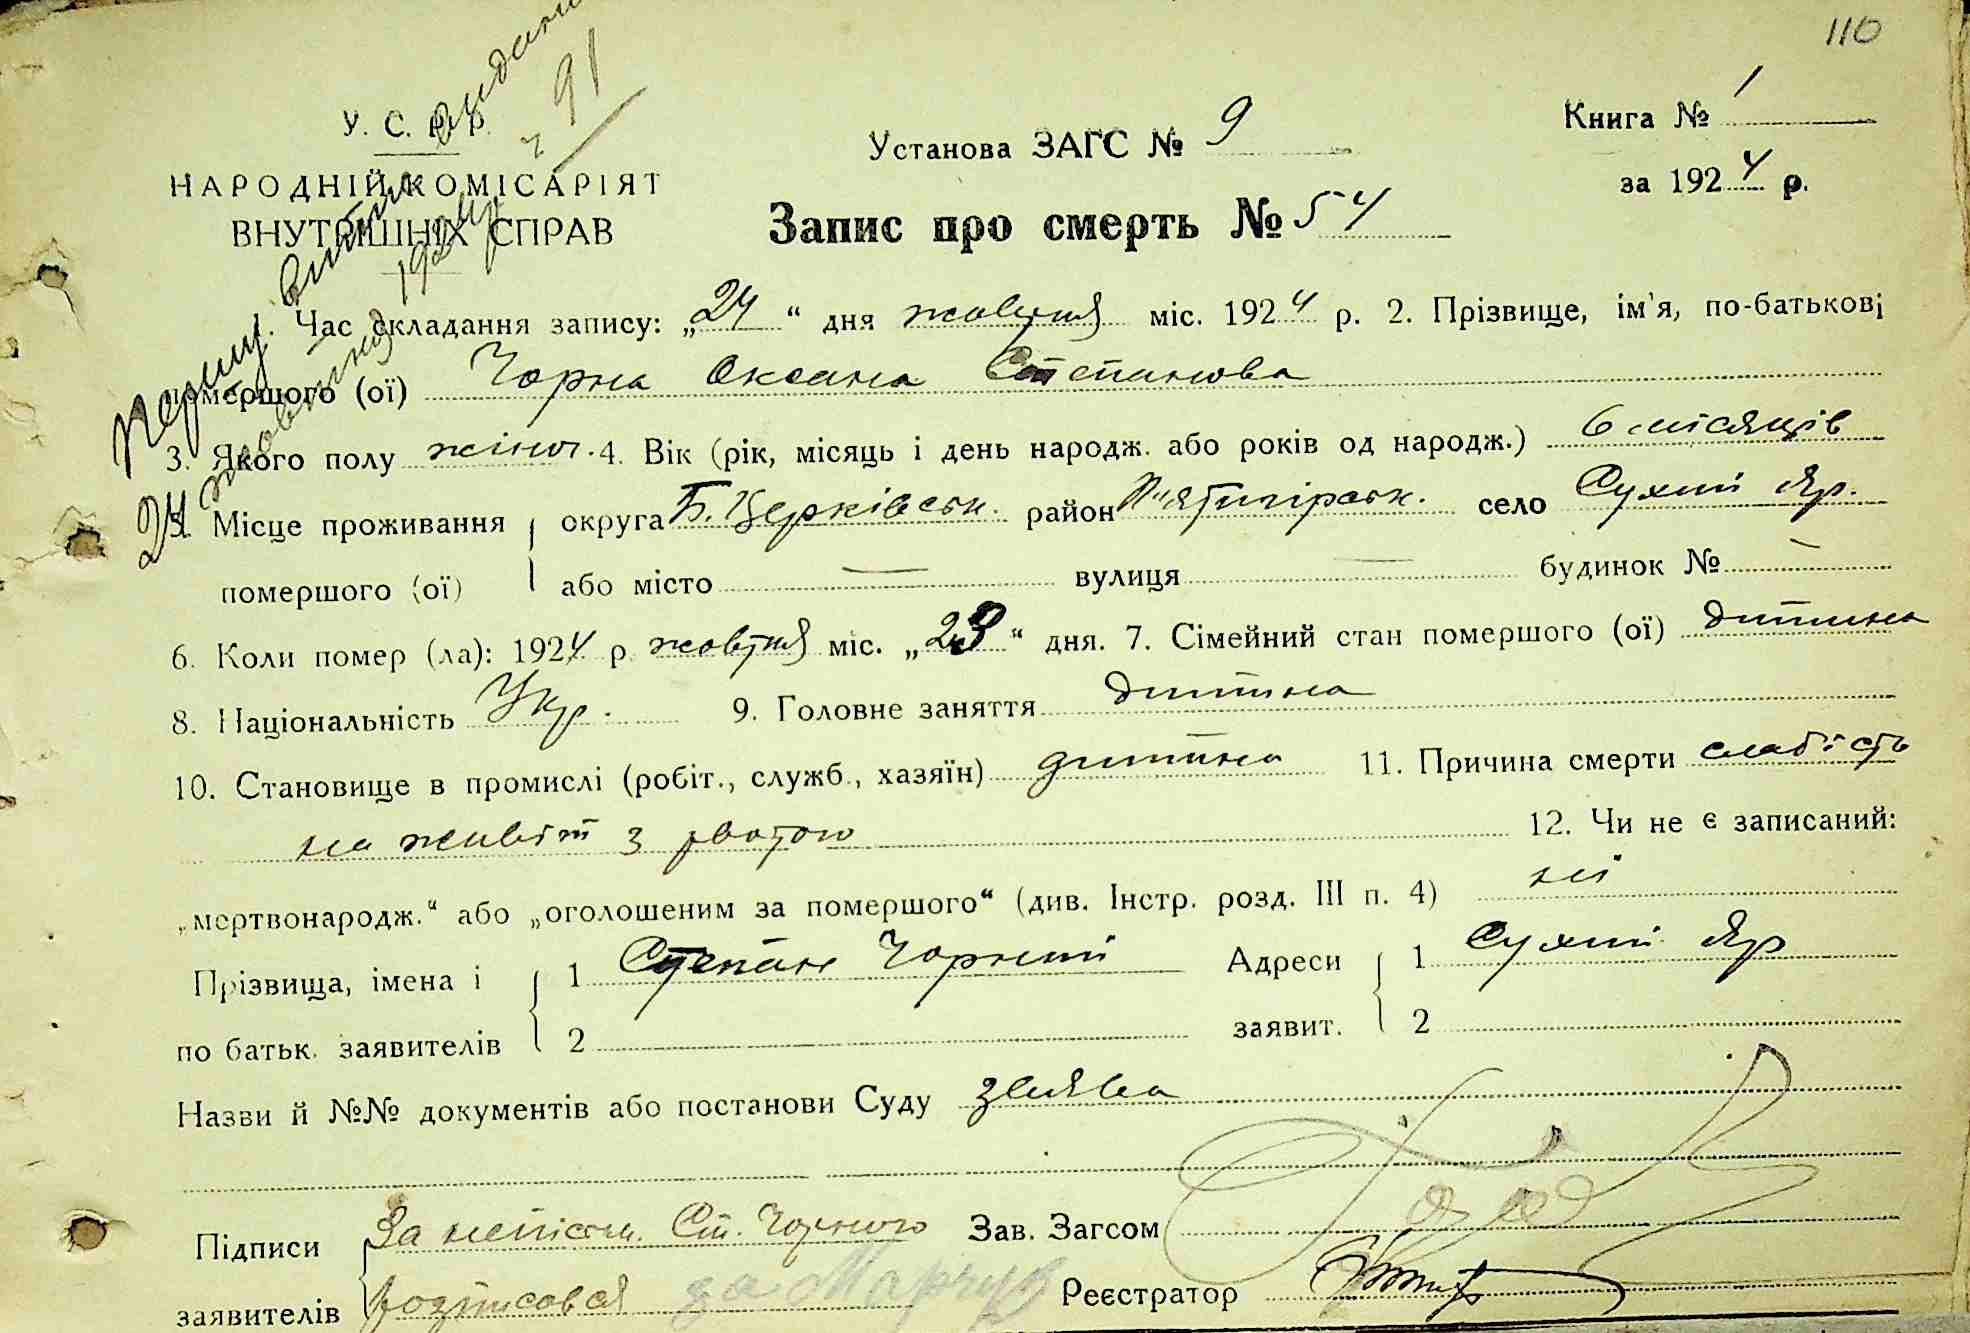 110
У. С. Р. Р.
НАРОДНІЙ КОМІСАРІЯТ
ВНУТРІШНІХ СПРАВ
Установа ЗАГС № 9
Книга № 1
за 1924 р.
Запис про смерть № 54
Перш. витяг видани
24 жовтня 1924 р. ч 91
1. Час складання запису: „24“ дня жовтня міс. 1924 р. 2. Прізвище, ім'я, по-батькові
помершого (ої) Чорна Оксана Степанова
3. Якого полу жіноч. 4. Вік (рік, місяць і день народж. або років од народж.) 6 місяців
5. Місце проживання округа Б. Церківськ. район П'ятигірськ. село Сухий Яр.
помершого (ої) або місто — вулиця — будинок № —
6. Коли помер (ла): 1924 р. жовтня міс. „23“ дня. 7. Сімейний стан помершого (ої) дитина
8. Національність Укр. 9. Головне заняття дитина
10. Становище в промислі (робіт., служб., хазяїн) дитина 11. Причина смерти слабість
на живіт з рвотою 12. Чи не є записаний:
„мертвонародж.“ або „оголошеним за помершого“ (див. Інстр. розд. III п. 4) ні
Прізвища, імена і 1 Степан Чорний Адреси 1 Сухий Яр
по батьк. заявителів 2 заявит. 2
Назви й №№ документів або постанови Суду заява
Підписи За неписьм. Ст. Чорного Зав. Загсом
заявителів розписовся за Реєстратор